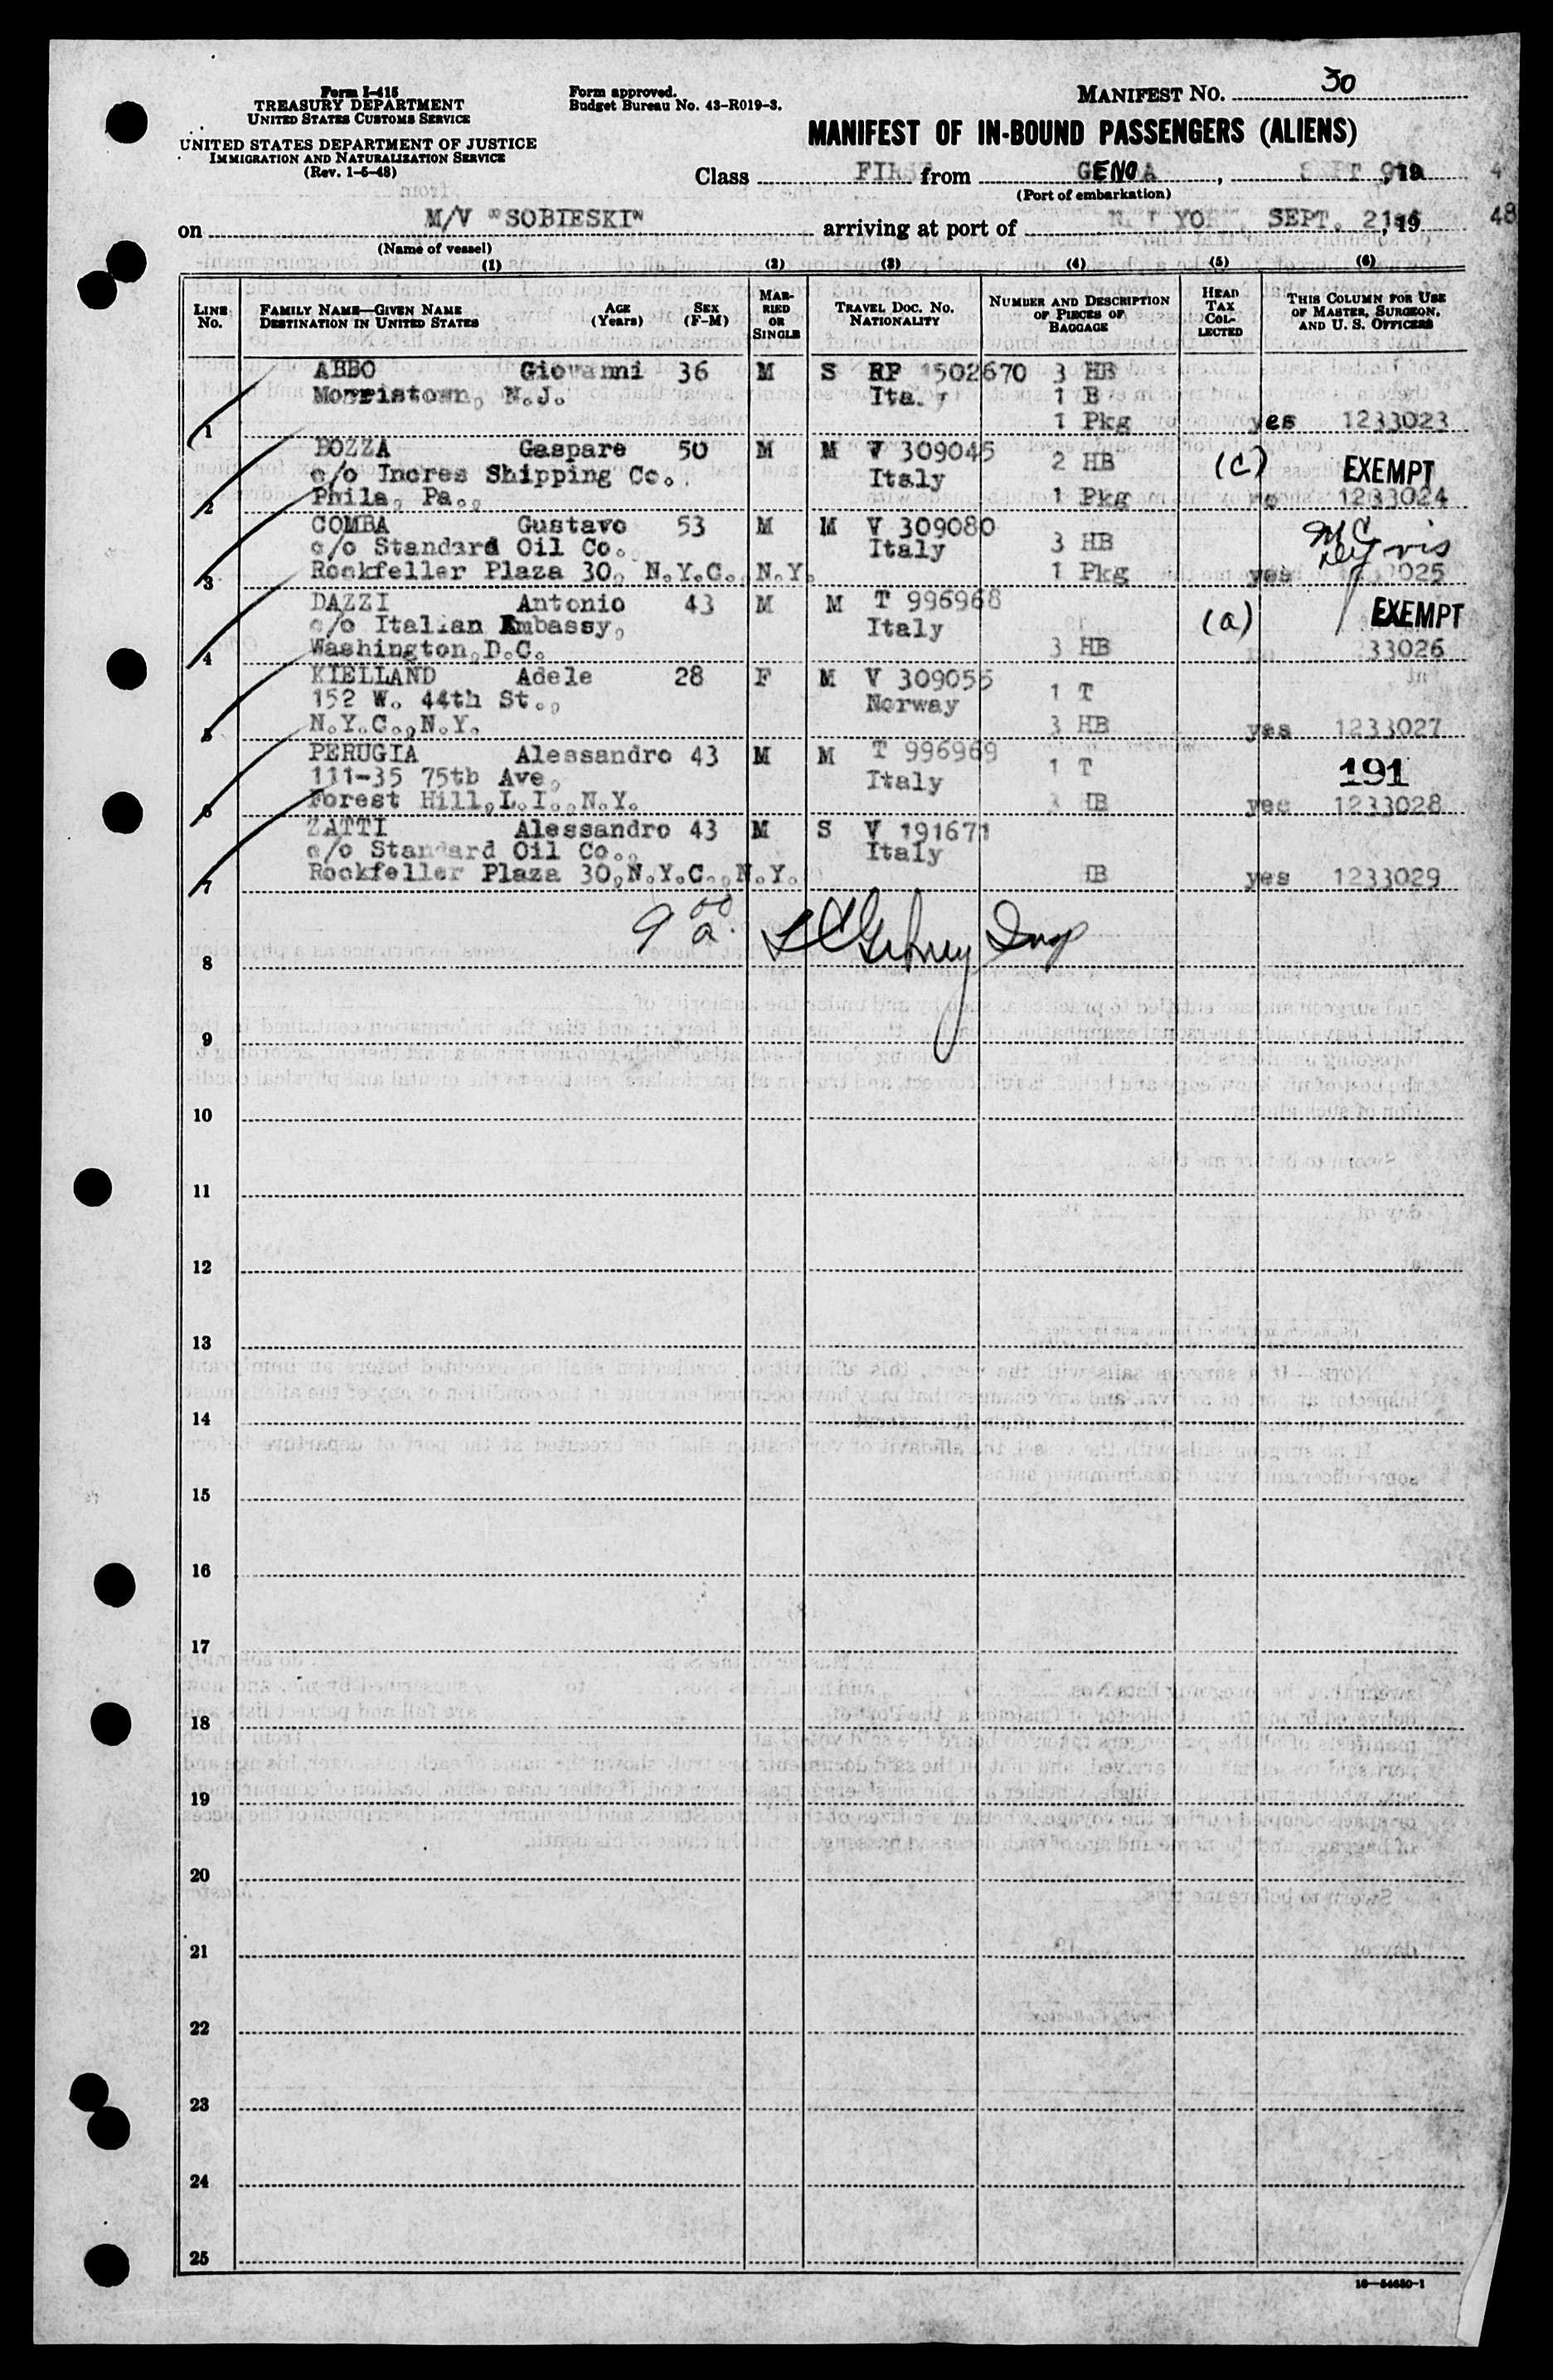 Form I-415
TREASURY DEPARTMENT
UNITED STATES CUSTOMS SERVICE
UNITED STATES DEPARTMENT OF JUSTICE
IMMIGRATION AND NATURALIZATION SERVICE
(Rev. 1-6-48)
Form approved.
Budget Bureau No. 43-R019-3.
MANIFEST NO. 30
MANIFEST OF IN-BOUND PASSENGERS (ALIENS)
Class FIRST from GENOA, SEPT 9th, 19 4
(Port of embarkation)
on M/V "SOBIESKI" arriving at port of NEW YORK, SEPT. 21st, 19 48
(Name of vessel)
(1) (2) (3) (4) (5) (6)
LINE No. FAMILY NAME—GIVEN NAME DESTINATION IN UNITED STATES AGE (Years) SEX (F-M) MARRIED OR SINGLE TRAVEL DOC. NO. NATIONALITY NUMBER AND DESCRIPTION OF PIECES OF BAGGAGE HEAD TAX COLLECTED THIS COLUMN FOR USE OF MASTER, SURGEON, AND U. S. OFFICERS
ABBO Giovanni 36 M S RP 1502670 3 HB
Morristown, N.J. Ita. y 1 B
1 1 Pkg yes 1233023
BOZZA Gaspare 50 M M V 309045 2 HB (c) EXEMPT
c/o Incres Shipping Co. Italy
2 Phila, Pa., 1 Pkg no 1233024
COMBA Gustavo 53 M M V 309080 3 HB
c/o Standard Oil Co. Italy
3 Rockfeller Plaza 30, N.Y.C., N.Y. 1 Pkg yes 025
DAZZI Antonio 43 M M T 996968 (a) EXEMPT
c/o Italian Embassy, Italy
4 Washington,D.C. 3 HB 33026
KIELLAND Adele 28 F M V 309055 1 T
152 W. 44th St., Norway
5 N.Y.C.,N.Y. 3 HB yes 1233027
PERUGIA Alessandro 43 M M T 996969 1 T 191
111-35 75tb Ave, Italy
6 Forest Hill,L.I.,N.Y. 3 HB yes 1233028
ZATTI Alessandro 43 M S V 191671
c/o Standard Oil Co., Italy
7 Rockfeller Plaza 30,N.Y.C.,N.Y. HB yes 1233029
9 00 a.
8
9
10
11
12
13
14
15
16
17
18
19
20
21
22
23
24
25
16—54650-1